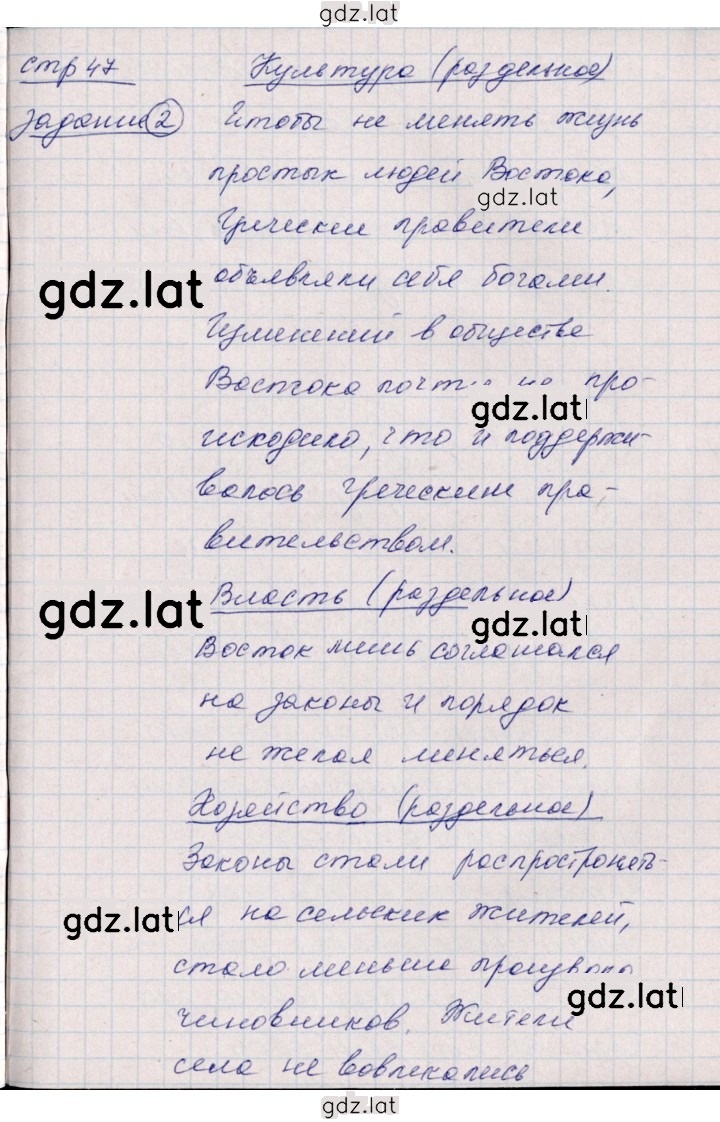 gdz.lat
стр 47 Культура (раздельное)
задание 2 Чтобы не менять жизнь
простых людей Востока,
gdz.lat
Греческие правители
объявляли себя богами.
gdz.lat
Изменений в обществе
Востока почти не про-
gdz.lat
исходило, что и поддержи-
валось греческим пра-
вительством.
Власть (раздельное)
gdz.lat
gdz.lat
Восток лишь соглашался
на законы и порядок
не желая меняться.
Хозяйство (раздельное)
Законы стали распространять-
ся на сельских жителей,
gdz.lat
стало меньше
gdz.lat
чиновников. Жители
села не вовлекались
gdz.lat